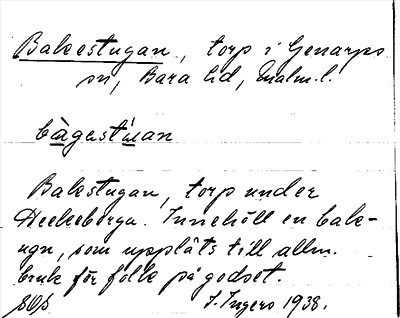 Bakestugan, torp i Genarps
sn, Bara hd, Malm.l.
bàgast´uan
Bakstugan, torp under
Heckeberga. Innehöll en bak-
ugn, som uppläts till allm.
bruk för folk på godset.
I. Ingers 1938.